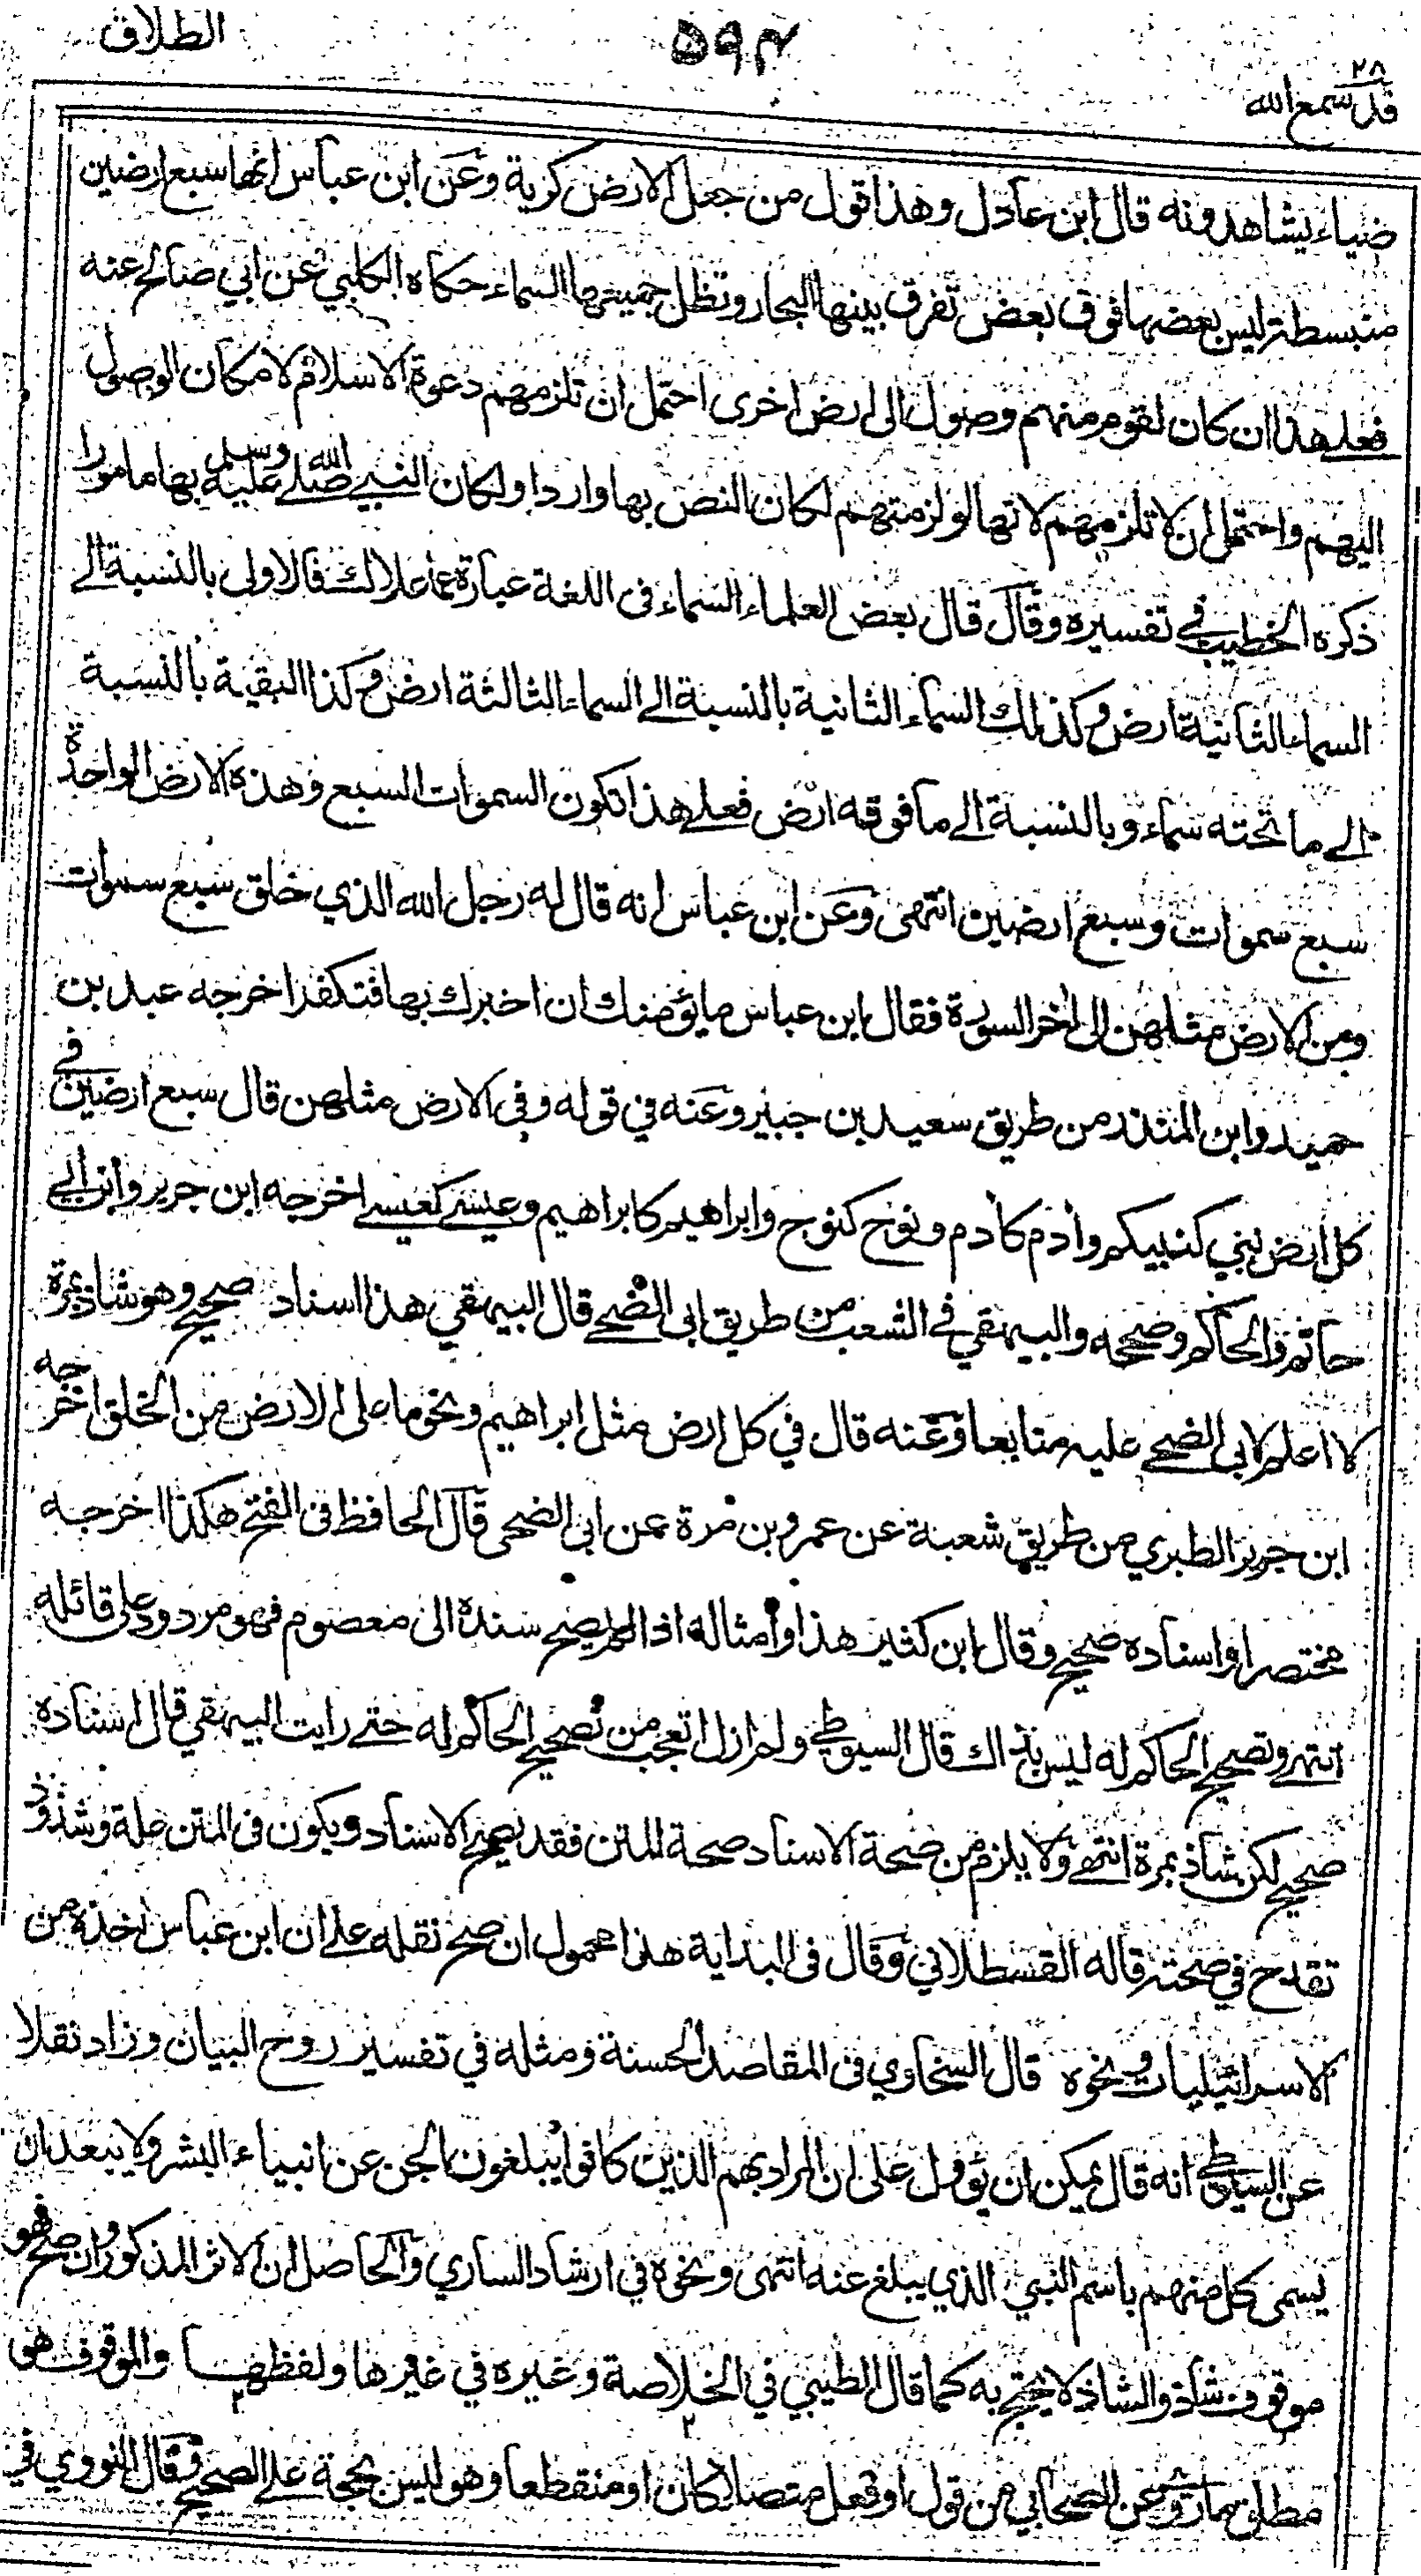 الطلاق
۵۹۴
۲۸
قد سمع الله
ضياء يشاهدونه قال ابن عادل وهذا قول من جعل الارض كرية وعن ابن عباس انها سبع ارضين
منبسطة ليس بعضها فوق بعض تفرق بينها البحار وتظل جميعها السماء حكاه الكلبي عن ابي صالح عنه
فعلے هذا ان كان لقوم منهم وصول الى ارض اخرى احتمل ان تلزمهم دعوة الاسلام لامكان الوصول
اليهم واحتمل ان لا تلزمهم لانها لو لزمتهم لكان النص بها واردا ولكان النبے صلے الله عليه وسلم بها مامورا
ذكره الخطيب فے تفسيره وقال قال بعض العلماء السماء فى اللغة عبارة عما علاك فالاولى بالنسبة الے
السماء الثانية ارض وكذلك السماء الثانية بالنسبة الے السماء الثالثة ارض وكذا البقية بالنسبة
الے ما تحته سماء وبالنسبة الے ما فوقه ارض فعلے هذا تكون السموات السبع وهذه الارض الواحدة
سبع سموات وسبع ارضين انتهى وعن ابن عباس انه قال له رجل الله الذي خلق سبع سموات
ومن الارض مثلهن الى اخر السورة فقال ابن عباس ما يؤمنك ان اخبرك بها فتكفر اخرجه عبد بن
حميد وابن المنذر من طريق سعيد بن جبير وعنه في قوله وفى الارض مثلهن قال سبع ارضين فے
كل ارض نبي كنبيكم وأدم كأدم ونوح كنوح وابراهيم كابراهيم وعيسے كعيسے اخرجه ابن جرير وابن ابے
حاتم والحاكم وصححه والبيهقي فے الشعب من طريق ابى الضحے قال البيهقي هذا اسناد صحيح وهو شاذ بمرة
لا اعلم لابى الضحے عليه متابعا وعنه قال في كل ارض مثل ابراهيم ونحو ما على الارض من الخلق اخرجه
ابن جرير الطبري من طريق شعبة عن عمرو بن مرة عن ابى الضحى قال الحافظ فى الفتح هكذا اخرجه
مختصرا واسناده صحيح وقال ابن كثير هذا وأمثاله اذا لم يصح سنده الى معصوم فهو مردود على قائله
انتهے وتصحيح الحاكم له ليس بذاك قال السيوطي ولم ازل اتعجب من تصحيح الحاكم له حتے رايت البيهقي قال اسناده
صحيح لكن شاذ بمرة انتهے ولا يلزم من صحة الاسناد صحة المتن فقد يصح الاسناد ويكون فى المتن علة وشذوذ
تقدح في صحته قاله القسطلاني وقال فى البداية هذا محمول ان صح نقله علے ان ابن عباس اخذه من
الاسرائيليات ونحوه قال السخاوي فى المقاصد الحسنة ومثله في تفسير روح البيان وزاد نقلا
عن السيوطي انه قال يمكن ان يؤول على ان المراد بهم الذين كانوا يبلغون الجن عن انبياء البشر ولا يبعد ان
يسمى كل منهم باسم النبي الذي يبلغ عنه انتهى ونحوه في ارشاد الساري والحاصل ان الاثر المذكور وان صح فهو
موقوف شاذ والشاذ لا يحتج به كما قال الطيبي في الخلاصة وغيره في غيرها ولفظهما والموقوف هو
مطلق ما روي عن الصحابي من قول او فعل متصلا كان او منقطعا وهو ليس بحجة علے الصحيح وقال النووي في